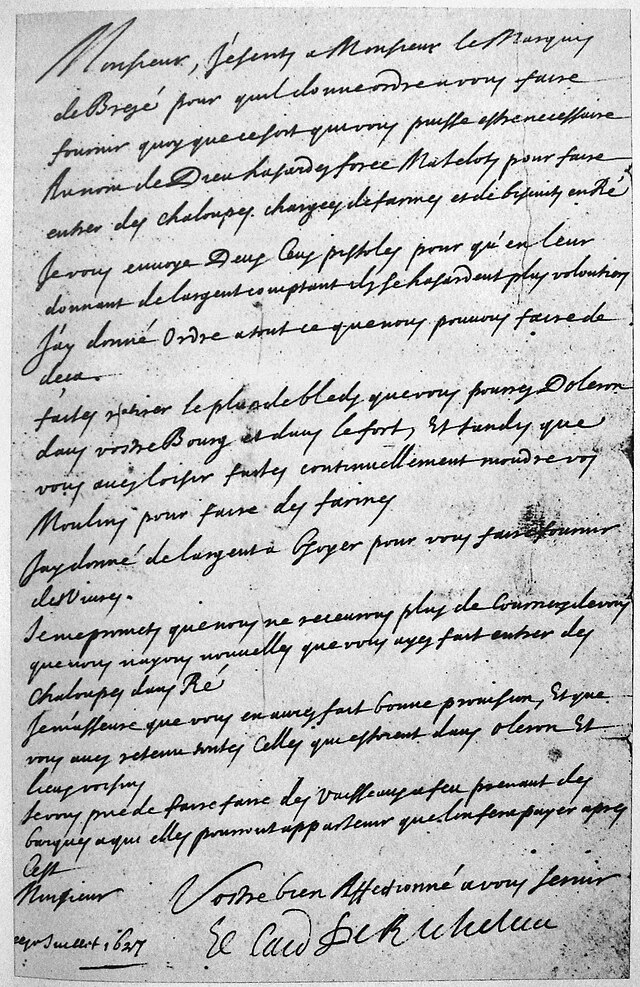 Monsieur, Jescrits a Monsieur le Marquis
de Bresé pour quil donne ordre a vous faire
fournir quoy que ce soit que vous puisse estre necessaire
Au nom de Dieu hasardes force Matelots pour faire
entrer des chaloupes chargees de farines et de biscuits en Ré
Je vous envoye Deux Cens pistoles pour qu'en leur
donnant de largent comptant ils se hasardent plus volontiers
J'ay donné Ordre a tout ce que nous pouvons faire de
deca.
faites retirer le plus de bleds que vous pourres Doleron
dans vostre Bourg et dans le fort, Et tandis que
vous aves loisir faites continuellement moudre vos
Moulins pour faire des farines
Jay donné de largent a Goyer pour vous faire fournir
des Vivres.
Je me promets que nous ne recevrons plus de Courriers de vous
que nous nayons nouvelles que vous ayes fait entrer des
chaloupes dans Ré
Je m'asseure que vous en aures fait bonne provision, Et que
vous aves retenu toutes Celles qui estoient dans Oleron Et
lieux voisins
Je vous prie de faire faire des Vaisseaux a feu prenant des
barques a qui elles pourront appartenir que lon fera payer apres
Cest
Monsieur
Vostre bien Affectionné a vous servir
Le Card De Richelieu
Juillet 1627